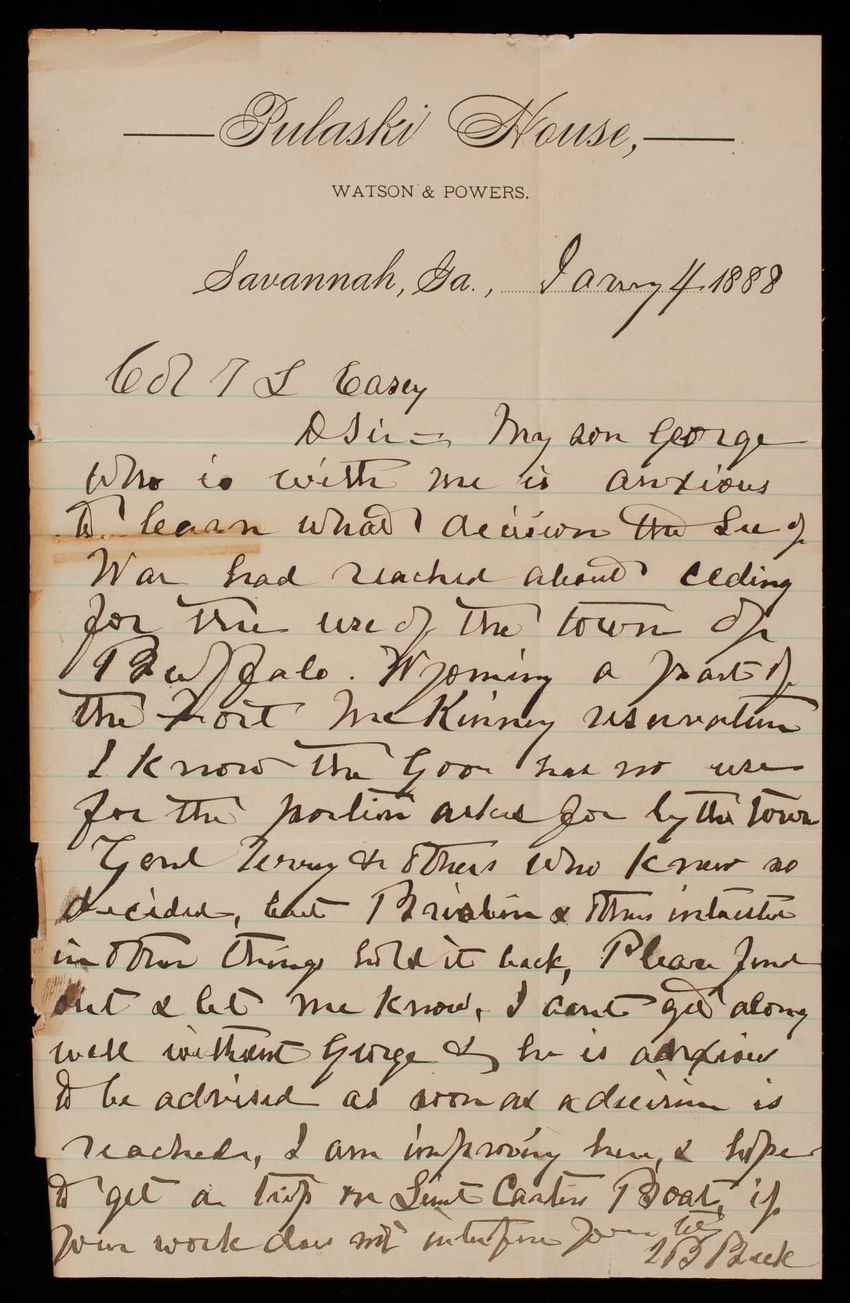 Pulaski House,
WATSON & POWERS.
Savannah, Ga., Jany 4 1888
Col T L Casey
D Sir = My son George
who is with me is anxious
to learn what decision the Sec of
War had reached about ceding
for the use of the town of
Buffalo. Wyoming a part of
the Fort McKinney reservation
I know the Gov has no use
for the portion asked for by the town
Genl Terry & others who know so
decided, but Brisbin & others interested
in other things hold it back, Please find
out & let me know, I cant get along
well without George & he is anxious
to be advised as soon as a decision is
reached, I am improving here, & hope
to get a trip on Lieut Carters Boat, if
your work does not interfere Yours &c
Beck